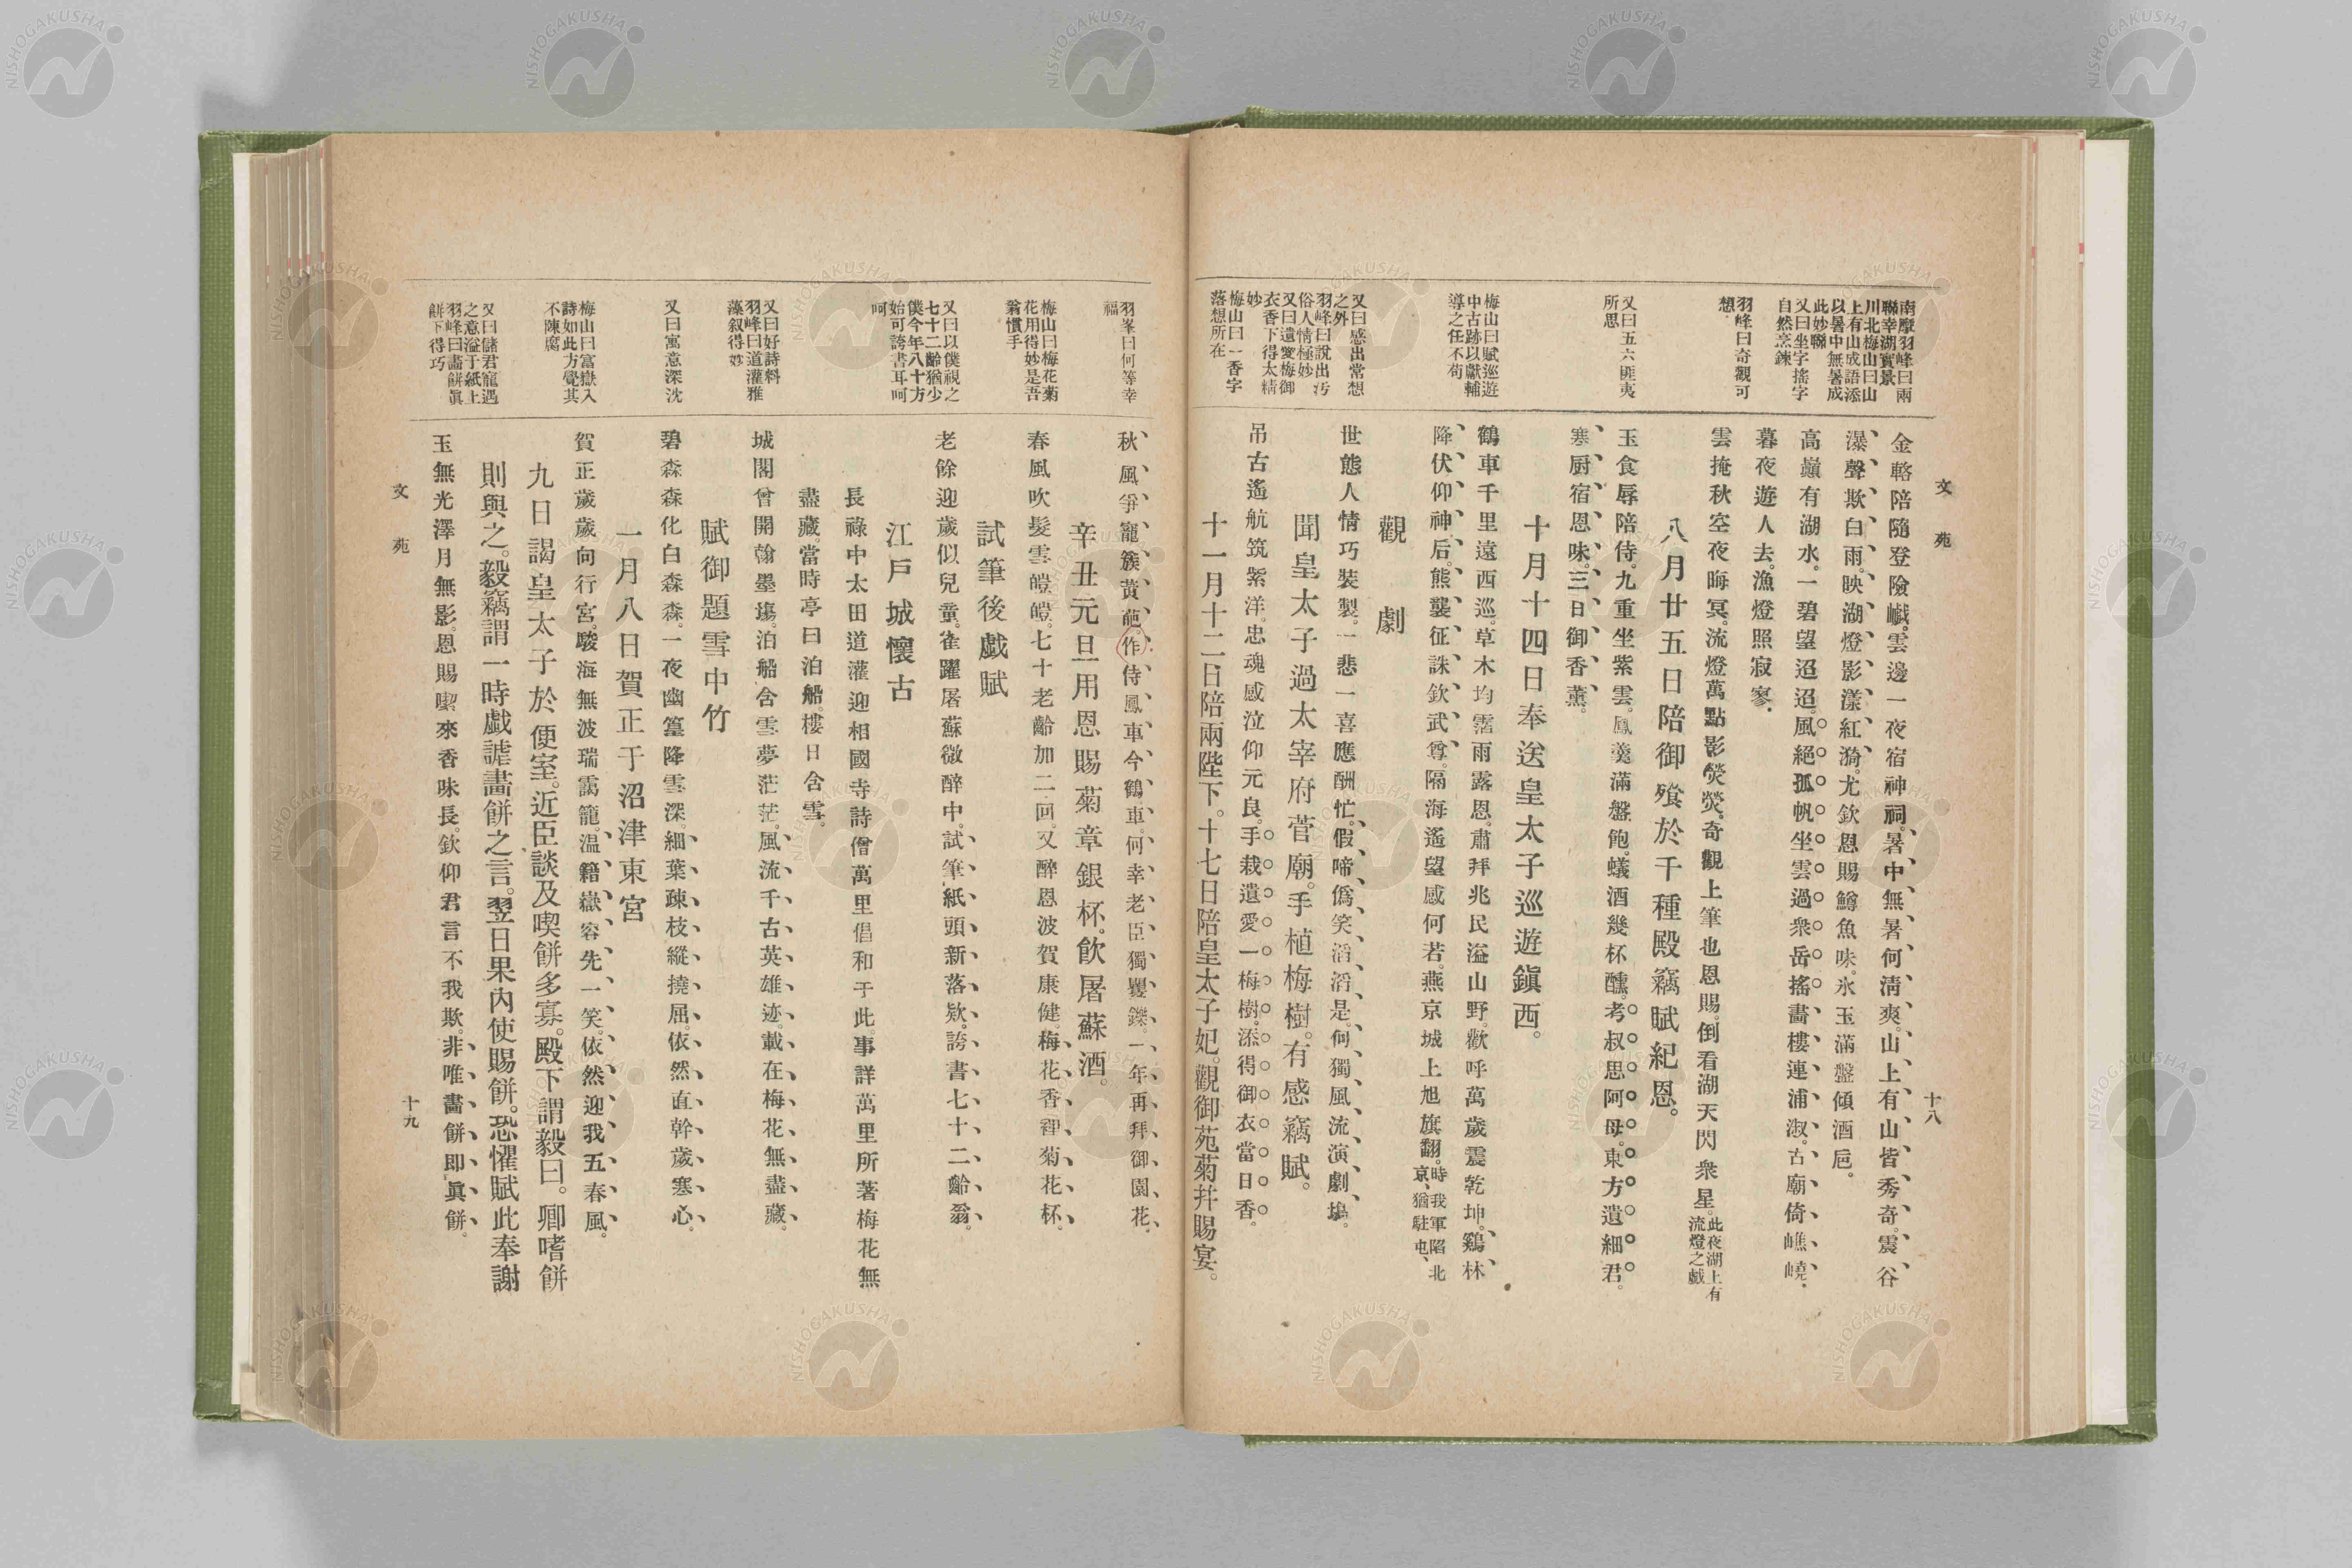 文苑
十八
南摩羽峰曰兩
聯幸湖實景
川北梅山曰山
上有山成語添
以暑中無暑成
此妙聯
又曰坐字搖字
自然烹鍊
羽峰曰奇觀可
想
又曰五六匪夷
所思
梅山曰賦巡遊
中古跡以獻輔
導之任不苟
又曰感出常想
之外
羽峰曰說出汚
俗人情極妙
又曰遺愛梅御
衣香下得太精
妙
梅山曰一香字
落想所在
金輅陪隨登險巇。雲邊一夜宿神祠。暑中無暑何淸爽。山上有山皆秀奇。震谷
瀑聲欺白雨。映湖燈影漾紅漪。尤欽恩賜鱒魚味。氷玉滿盤傾酒卮。
高巓有湖水。一碧望迢迢。風絕孤帆坐雲過衆岳搖畵樓連浦溆。古廟倚㠐嶢。
暮夜遊人去。漁燈照寂寥。
雲掩秋空夜晦冥。流燈萬點影熒熒。奇觀上筆也恩賜。倒看湖天閃衆星。此夜湖上有
流燈之戲
八月廿五日陪御飱於千種殿竊賦紀恩。
玉食辱陪侍。九重坐紫雲。鳳羹滿盤飽。蟻酒幾杯醺。考叔思阿母。東方遺細君。
寒厨宿恩味。三日御香薰。
十月十四日奉送皇太子巡遊鎭西。
鶴車千里遠西巡。草木均霑雨露恩。肅拜兆民溢山野。歡呼萬歲震乾坤。鷄林
降伏仰神后。熊襲征誅欽武尊。隔海遙望感何若。燕京城上旭旗翻。時我軍陷北
京、猶駐屯、
觀劇
世態人情巧裝製。一悲一喜應酬忙。假啼僞笑滔滔是。何獨風流演劇塲。
聞皇太子過太宰府菅廟。手植梅樹。有感竊賦。
吊古遙航筑紫洋。忠魂感泣仰元良。手栽遺愛一梅樹。添得御衣當日香。
十一月十二日陪兩陛下。十七日陪皇太子妃。觀御苑菊幷賜宴。
羽峯曰何等幸
福
梅山曰梅花菊
花用得妙是吾
翁慣手
又曰以僕視之
七十二齡猶少
僕今年八十方
始可誇書耳呵
呵
又曰好詩料
羽峰曰道灌雅
藻叙得妙
又曰寓意深沈
梅山曰富嶽入
詩如此方覺其
不陳腐
又曰儲君寵遇
之意溢于紙上
羽峰曰畵餅眞
餅下得巧
秋風爭寵簇黃葩。作侍鳳車今鶴車。何幸老臣獨矍鑠。一年再拜御園花。
辛丑元旦用恩賜菊章銀杯。飮屠蘇酒。
春風吹髮雪皚皚。七十老齡加二回。又醉恩波賀康健。梅花香裡菊花杯。
試筆後戲賦
老餘迎歲似兒童。雀躍屠蘇微醉中。試筆紙頭新落欵。誇書七十二齡翁。
江戶城懷古
長祿中太田道灌迎相國寺詩僧萬里倡和于此。事詳萬里所著梅花無
盡藏。當時亭曰泊船。樓曰含雪。
城閣曾開翰墨塲。泊船含雪夢茫茫。風流千古英雄迹。載在梅花無盡藏。
賦御題雪中竹
碧森森化白森森。一夜幽篁降雪深。細葉疎枝縱撓屈。依然直幹歲寒心。
一月八日賀正于沼津東宮
賀正歲歲向行宮。駿海無波瑞靄籠。温籍嶽容先一笑。依然迎我五春風。
九日謁皇太子於便室。近臣談及喫餅多寡。殿下謂毅曰。卿嗜餅
則與之。毅竊謂一時戲謔畵餅之言。翌日果內使賜餅。恐懼賦此奉謝
玉無光澤月無影。恩賜喫來香味長。欽仰君言不我欺。非唯畵餅即眞餅。
文苑
十九